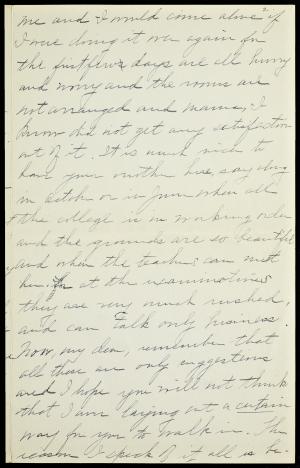 me and I would come alone if
I were doing it over again for
the first few days are all hurry
and worry and the rooms are
not arranged and mama, I
know did not get any satisfaction
out of it. It is much nicer to
have your mother here, say along
in October or in June when all
the college is in working order
and the grounds are so beautiful
and when the teachers can meet
her. For at the examinations
they are very much rushed,
and can talk only business.
Now, my dear, remember that
all these are only suggestions
and I hope you will not think
that I am laying out a certain
way for you to walk in. The
reason I speak of it all is be-